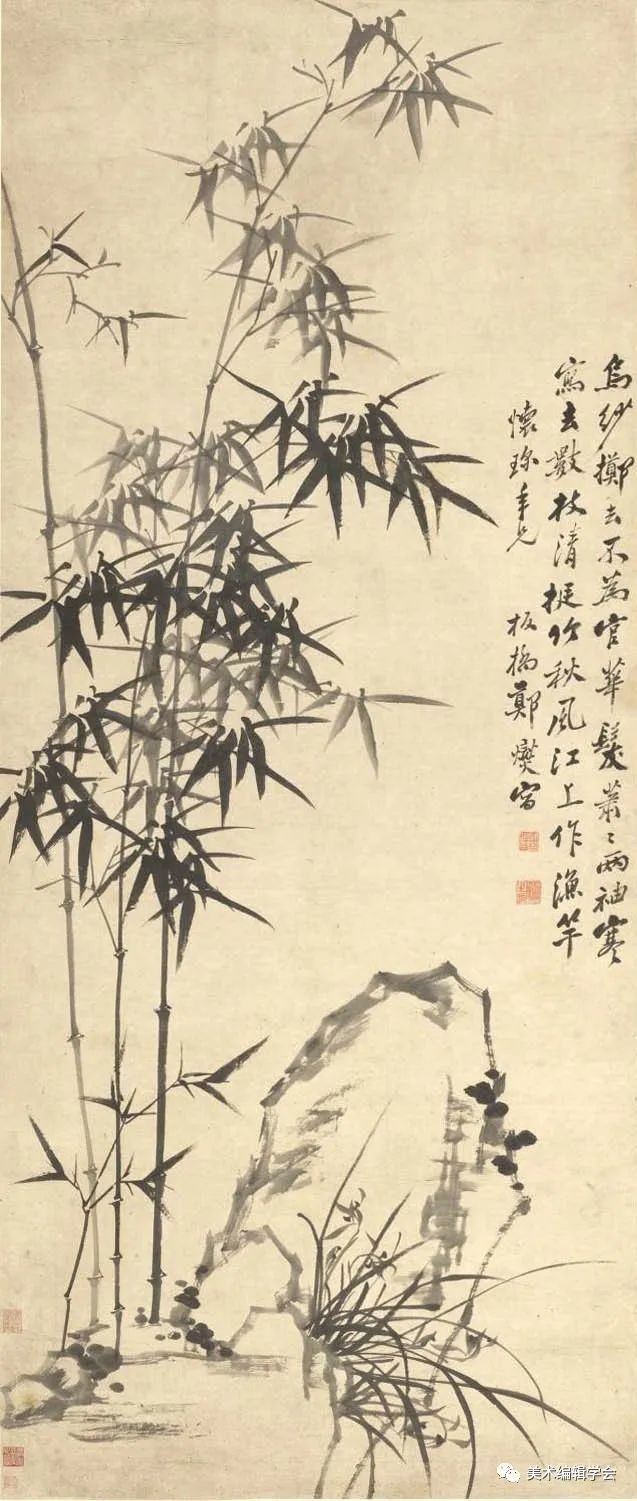 烏紗擲去不為官華髮蕭〻兩袖寒
寫去數枝清挺竹秋風江上作漁竿
懷珎年兄
板橋鄭燮寫
美术编辑学会